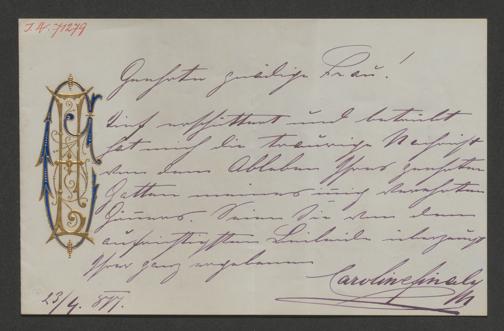 I.N. 71279
Geehrte gnädige Frau!
Tief erschüttert und betrübt
hat mich die traurige Nachricht
von dem Ableben Ihres geehrten
Gatten meines innig verehrten
Gönners. Seien Sie von dem
aufrichtigsten Beileide überzeugt
Ihre ganz ergebene
Caroline Finaly
23/4. 877.